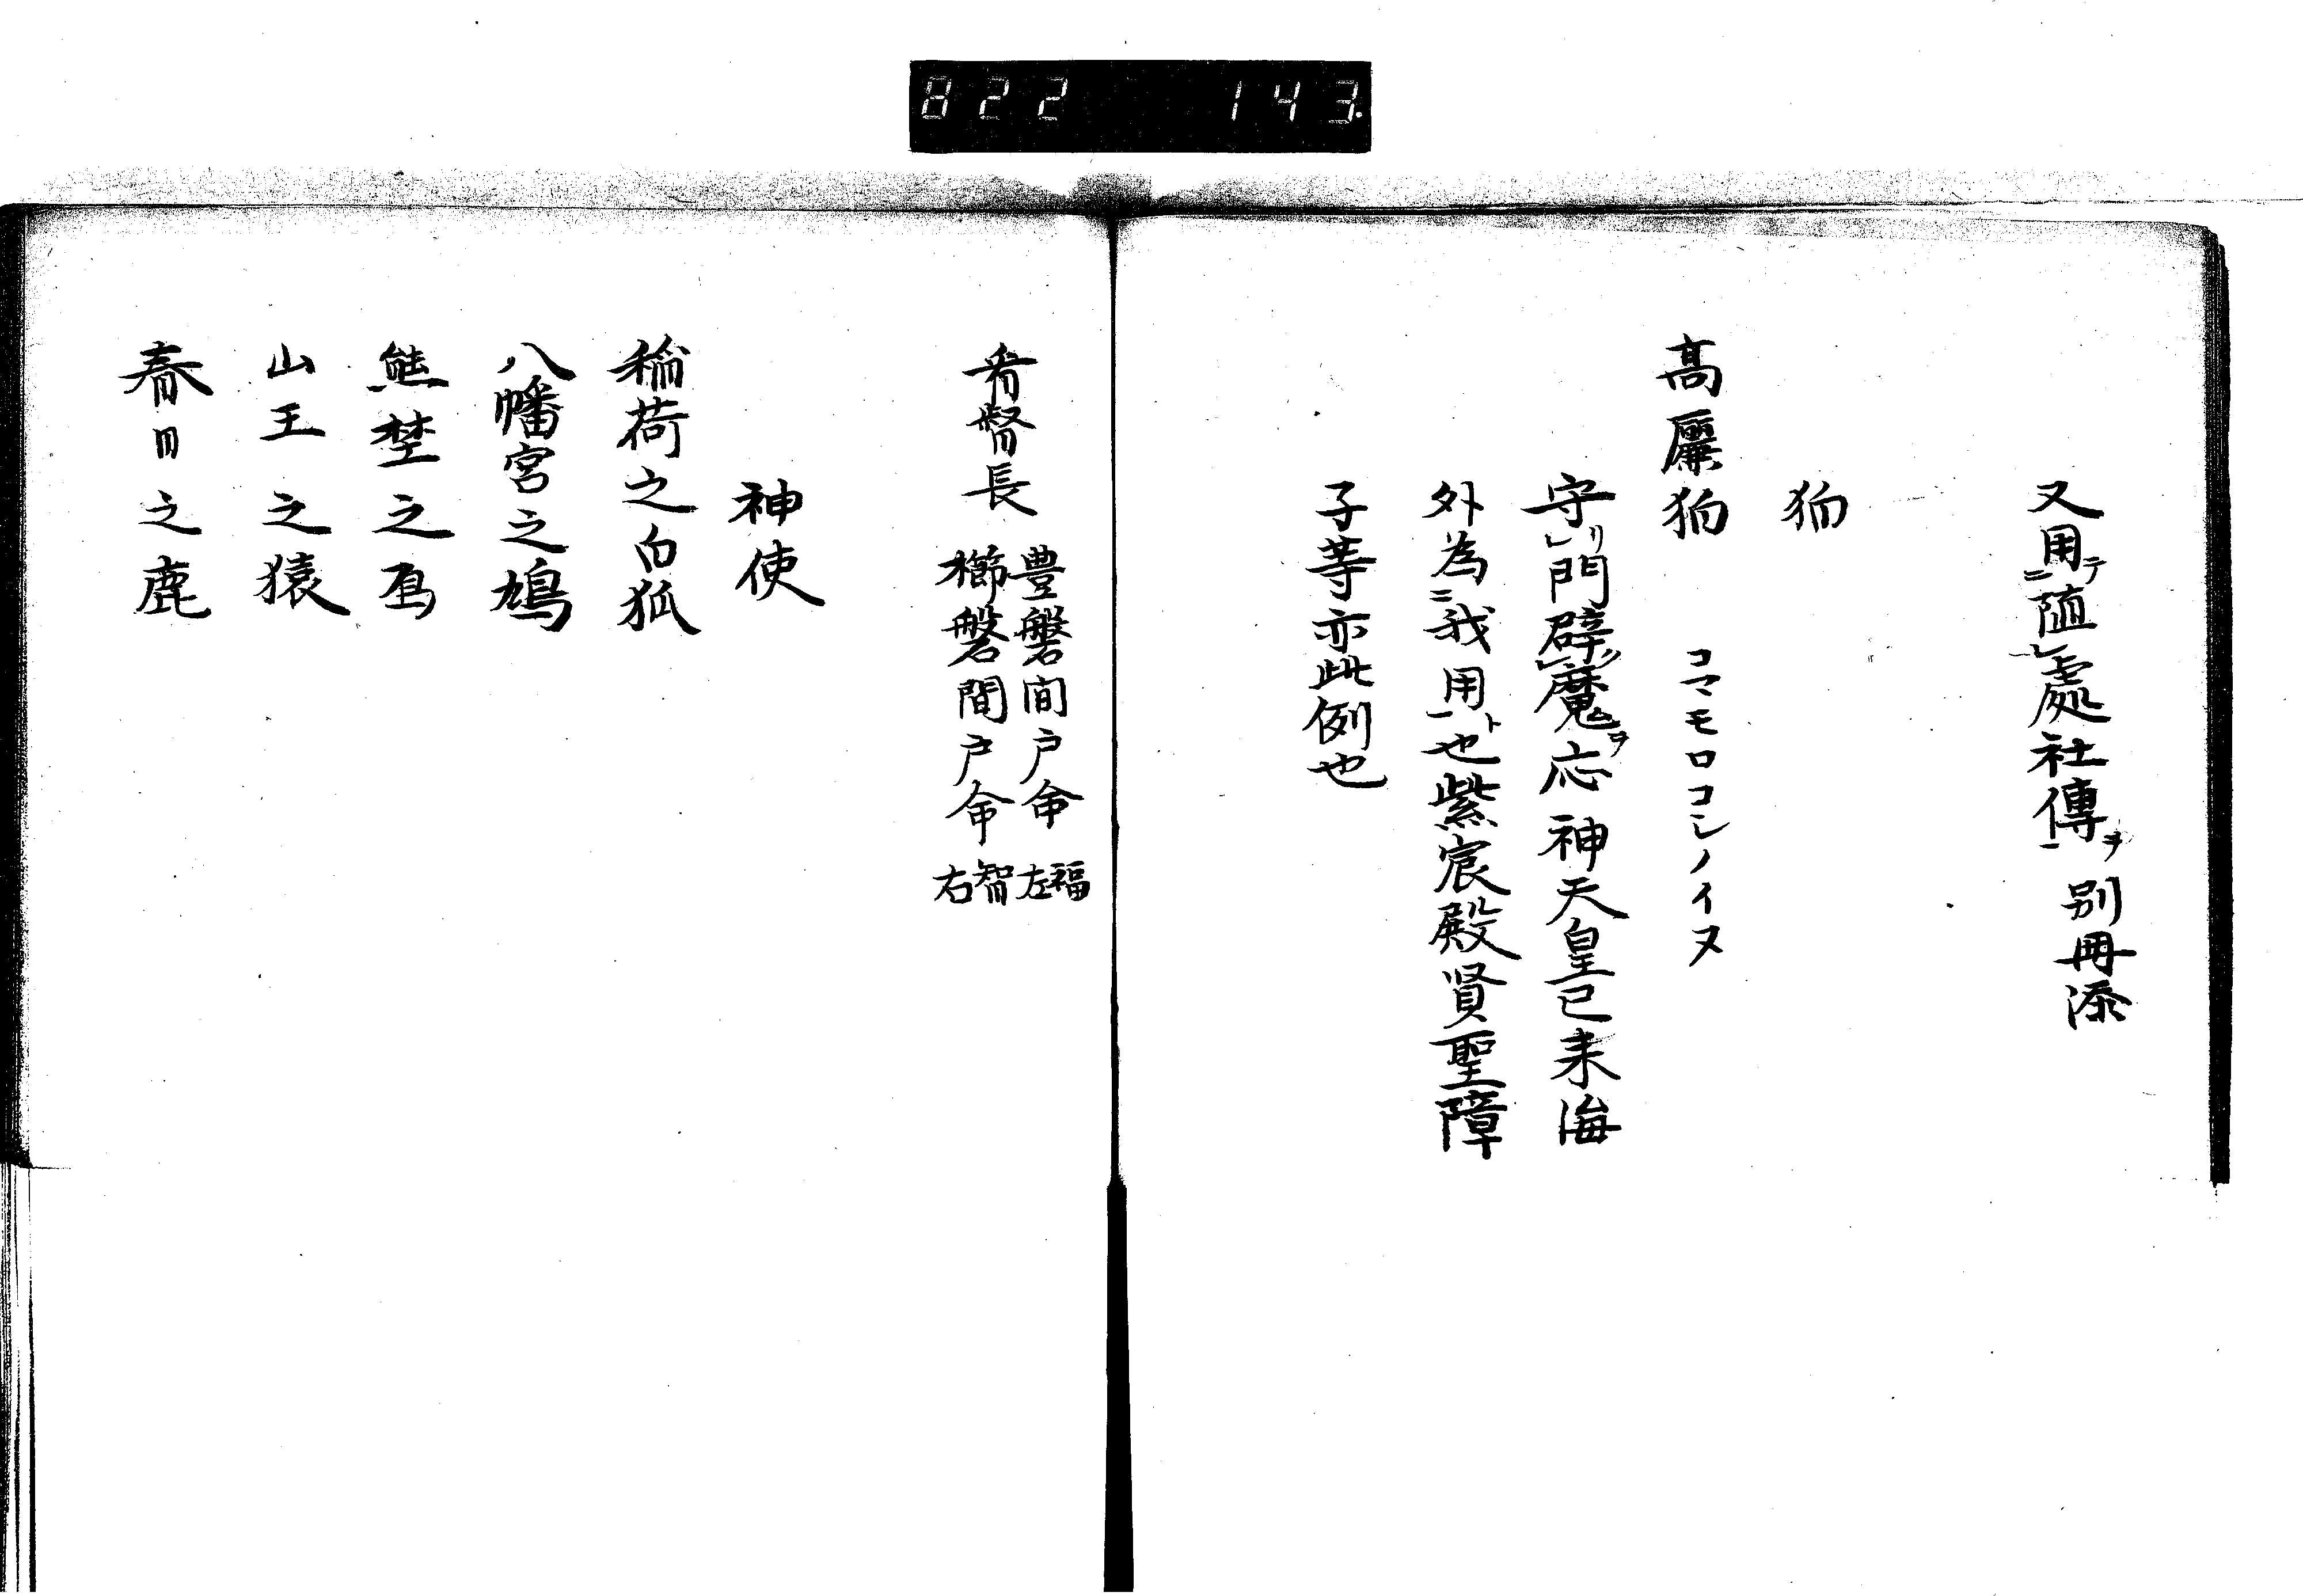 822 143.
又用テ二随レ處社傳ヲ一別冊添
狛
高麗狛 コマモロコシノイヌ
守リレ門辟ケレ魔ヲ応神天皇已来海
外為二我用ト一也紫宸殿賢聖障
子等亦此例也
看督長 豊磐間戸命 福左
櫛磐間戸命 智右
神使
稲荷之白狐
八幡宮之鳩
熊埜之烏
山王之猿
春日之鹿